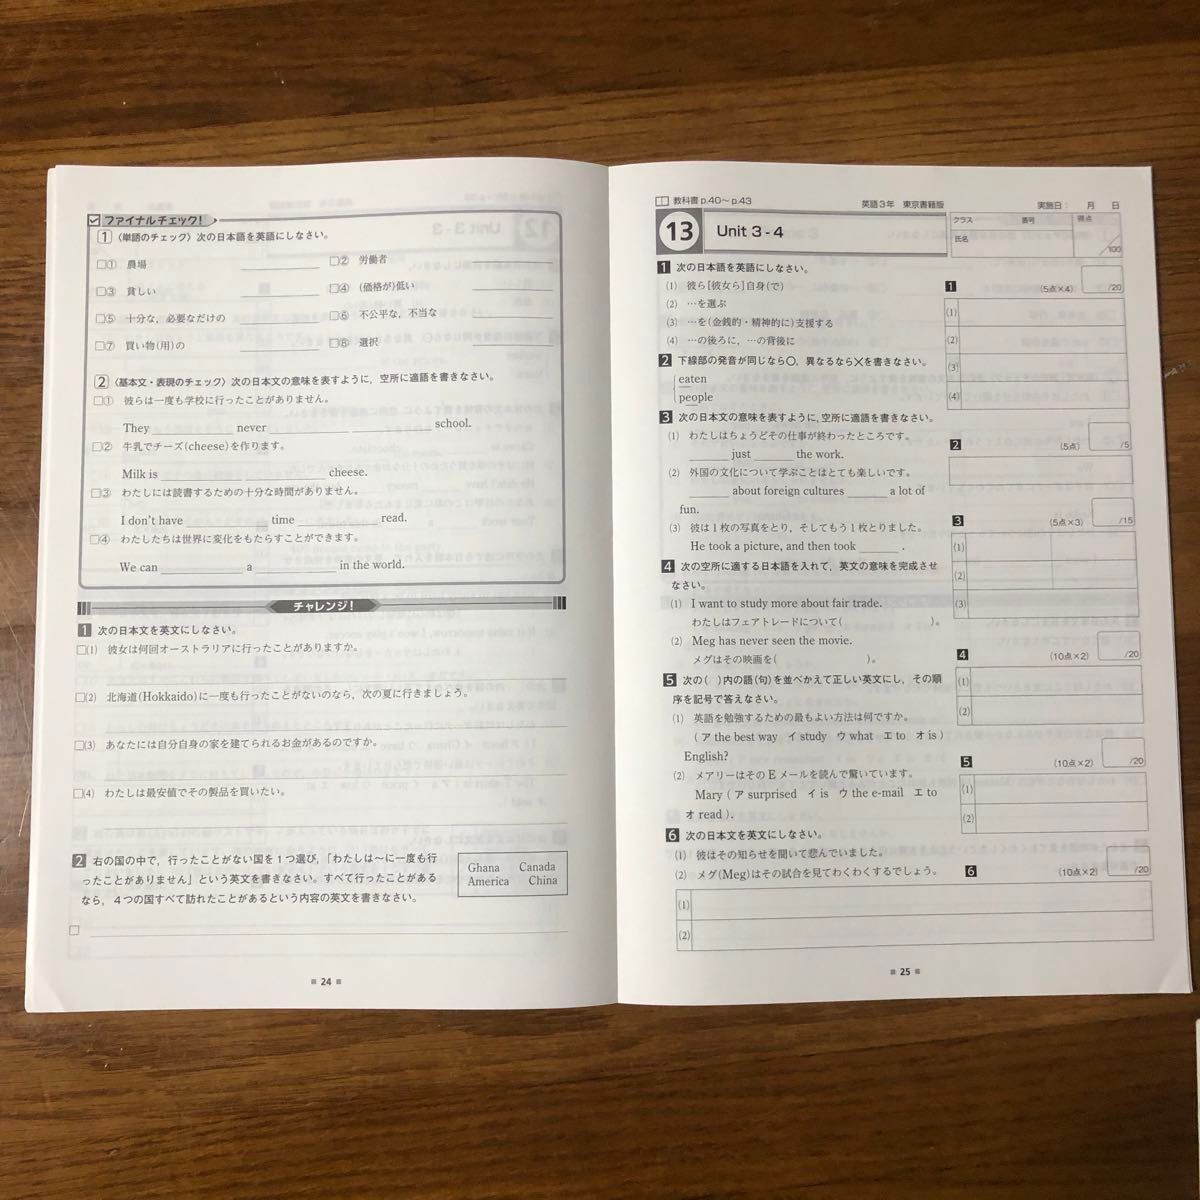 ファイナルチェック!
1 〈単語のチェック〉次の日本語を英語にしなさい。
□① 農場 □② 労働者
□③ 貧しい □④ (価格が)低い
□⑤ 十分な，必要なだけの □⑥ 不公平な，不当な
□⑦ 買い物(用)の □⑧ 選択
2 〈基本文・表現のチェック〉次の日本文の意味を表すように，空所に適語を書きなさい。
□① 彼らは一度も学校に行ったことがありません。
They never school.
□② 牛乳でチーズ(cheese)を作ります。
Milk is cheese.
□③ わたしには読書するための十分な時間がありません。
I don't have time read.
□④ わたしたちは世界に変化をもたらすことができます。
We can a in the world.
チャレンジ!
1 次の日本文を英文にしなさい。
□(1) 彼女は何回オーストラリアに行ったことがありますか。
□(2) 北海道(Hokkaido)に一度も行ったことがないのなら，次の夏に行きましょう。
□(3) あなたには自分自身の家を建てられるお金があるのですか。
□(4) わたしは最安値でその製品を買いたい。
2 右の国の中で，行ったことがない国を1つ選び，「わたしは〜に一度も行
ったことがありません」という英文を書きなさい。すべて行ったことがある
なら，4つの国すべて訪れたことがあるという内容の英文を書きなさい。
Ghana Canada
America China
24
教科書 p.40〜p.43 英語3年 東京書籍版 実施日： 月 日
13 Unit 3-4
クラス 番号 得点
氏名 /100
1 次の日本語を英語にしなさい。
(1) 彼ら[彼女ら]自身(で)
(2) …を選ぶ
(3) …を(金銭的・精神的に)支援する
(4) …の後ろに，…の背後に
2 下線部の発音が同じなら○，異なるなら×を書きなさい。
eaten
people
3 次の日本文の意味を表すように，空所に適語を書きなさい。
(1) わたしはちょうどその仕事が終わったところです。
just the work.
(2) 外国の文化について学ぶことはとても楽しいです。
about foreign cultures a lot of
fun.
(3) 彼は1枚の写真をとり，そしてもう1枚とりました。
He took a picture, and then took .
4 次の空所に適する日本語を入れて，英文の意味を完成させ
なさい。
(1) I want to study more about fair trade.
わたしはフェアトレードについて( )。
(2) Meg has never seen the movie.
メグはその映画を( )。
5 次の( )内の語(句)を並べかえて正しい英文にし，その順
序を記号で答えなさい。
(1) 英語を勉強するための最もよい方法は何ですか。
(ア the best way イ study ウ what エ to オ is)
English?
(2) メアリーはそのEメールを読んで驚いています。
Mary (ア surprised イ is ウ the e-mail エ to
オ read).
6 次の日本文を英文にしなさい。
(1) 彼はその知らせを聞いて悲しんでいました。
(2) メグ(Meg)はその試合を見てわくわくするでしょう。
1 (5点×4) /20
(1)
(2)
(3)
(4)
2 (5点) /5
3 (5点×3) /15
(1)
(2)
(3)
4 (10点×2) /20
(1)
(2)
5 (10点×2) /20
(1)
(2)
6 (10点×2) /20
(1)
(2)
25